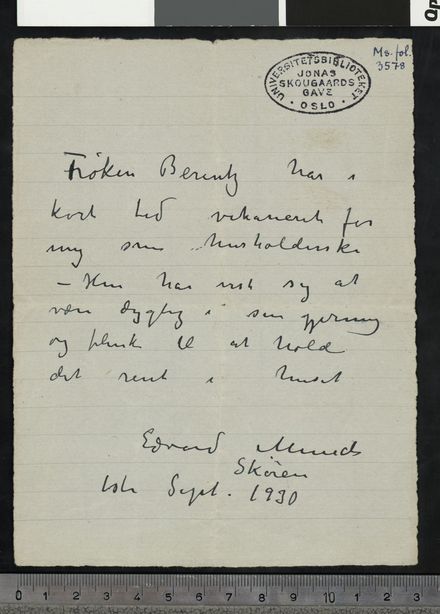 Ms. fol.
3578
UNIVERSITETSBIBLIOTEKET
JONAS
SKOUGAARDS
GAVE
OSLO
Frøken Berentz har i
kort tid vikarieret for
mig som husholderske
– Hun har vist sig at
være dygtig i sin gjerning
og flink til at holde
det rent i huset
Edvard Munch
Skøien
1ste Sept. 1930
0 1 2 3 4 5 6 7 8 9 10 1 2 3